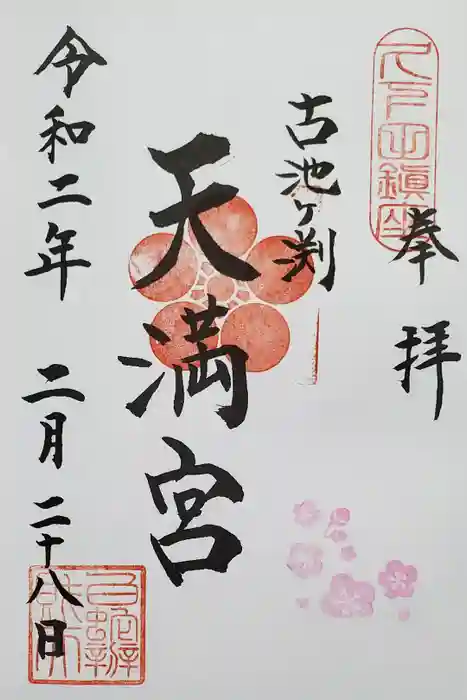 奉拝
古池ヶ渕
天満宮
令和二年 二月二十八日